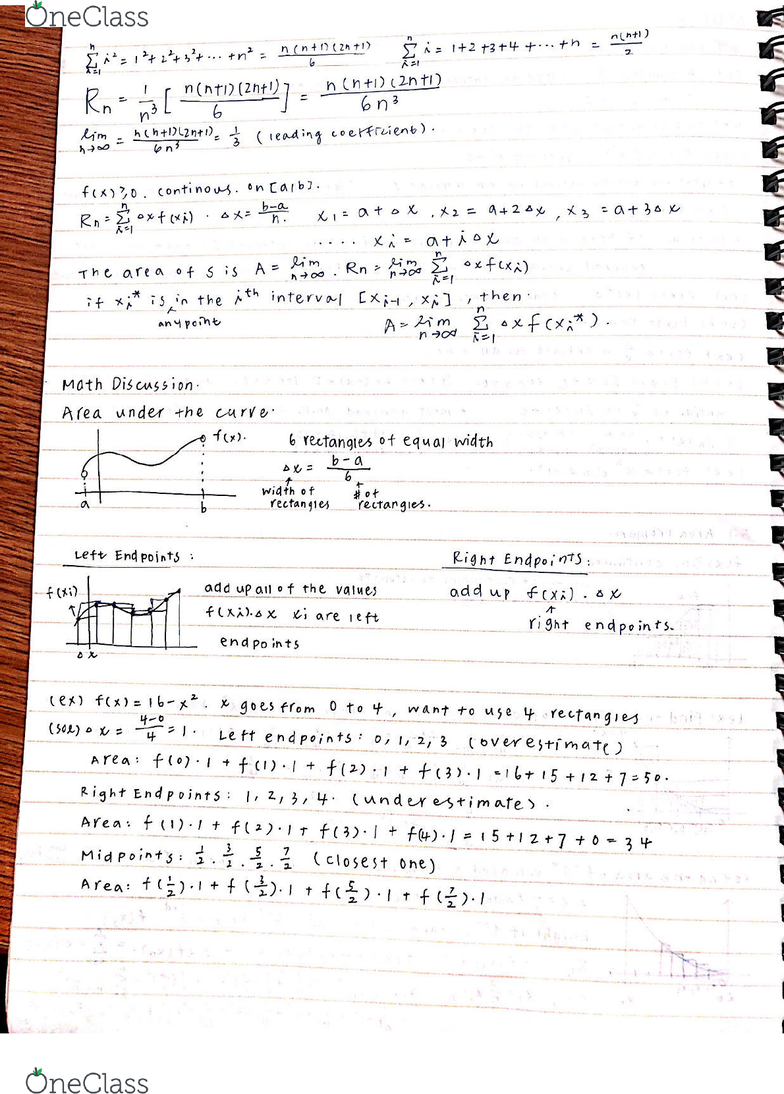 OneClass
n∑i=1 i² = 1²+2²+3²+ ··· +n² = n(n+1)(2n+1)/6   n∑i=1 i = 1+2+3+4+···+n = n(n+1)/2
Rn = 1/n³ [ n(n+1)(2n+1)/6 ] = n(n+1)(2n+1)/6n³
lim n→∞ = n(n+1)(2n+1)/6n³ = 1/3 (leading coefficient).
f(x)≥0. continous. on [a,b].
Rn = n∑i=1 △x f(xi) . △x = b-a/n.   x1 = a+△x , x2 = a+2△x , x3 = a+3△x
.... xi = a+i△x
The area of s is A = lim n→∞ . Rn = lim n→∞ n∑i=1 △x f(xi)
if xi* is in the ith interval [xi-1, xi] , then.
any point
A = lim n→∞ n∑i=1 △x f(xi*).
Math Discussion.
Area under the curve.
f(x).
6 rectangles of equal width
△x = b-a/6
width of rectangles
# of rectangles.
a
b
Left Endpoints :
f(xi)
△x
add up all of the values
f(xi).△x xi are left
endpoints
Right Endpoints :
add up f(xi) . △x
right endpoints.
(ex) f(x) = 16-x². x goes from 0 to 4, want to use 4 rectangles
(sol) △x = 4-0/4 = 1. Left endpoints: 0, 1, 2, 3 (overestimate)
Area: f(0)·1 + f(1)·1 + f(2)·1 + f(3)·1 = 16+15+12+7=50.
Right Endpoints: 1, 2, 3, 4. (underestimate).
Area: f(1)·1 + f(2)·1 + f(3)·1 + f(4)·1 = 15+12+7+0 = 34
Midpoints: 1/2. 3/2. 5/2. 7/2 (closest one)
Area: f(1/2)·1 + f(3/2)·1 + f(5/2)·1 + f(7/2)·1
OneClass